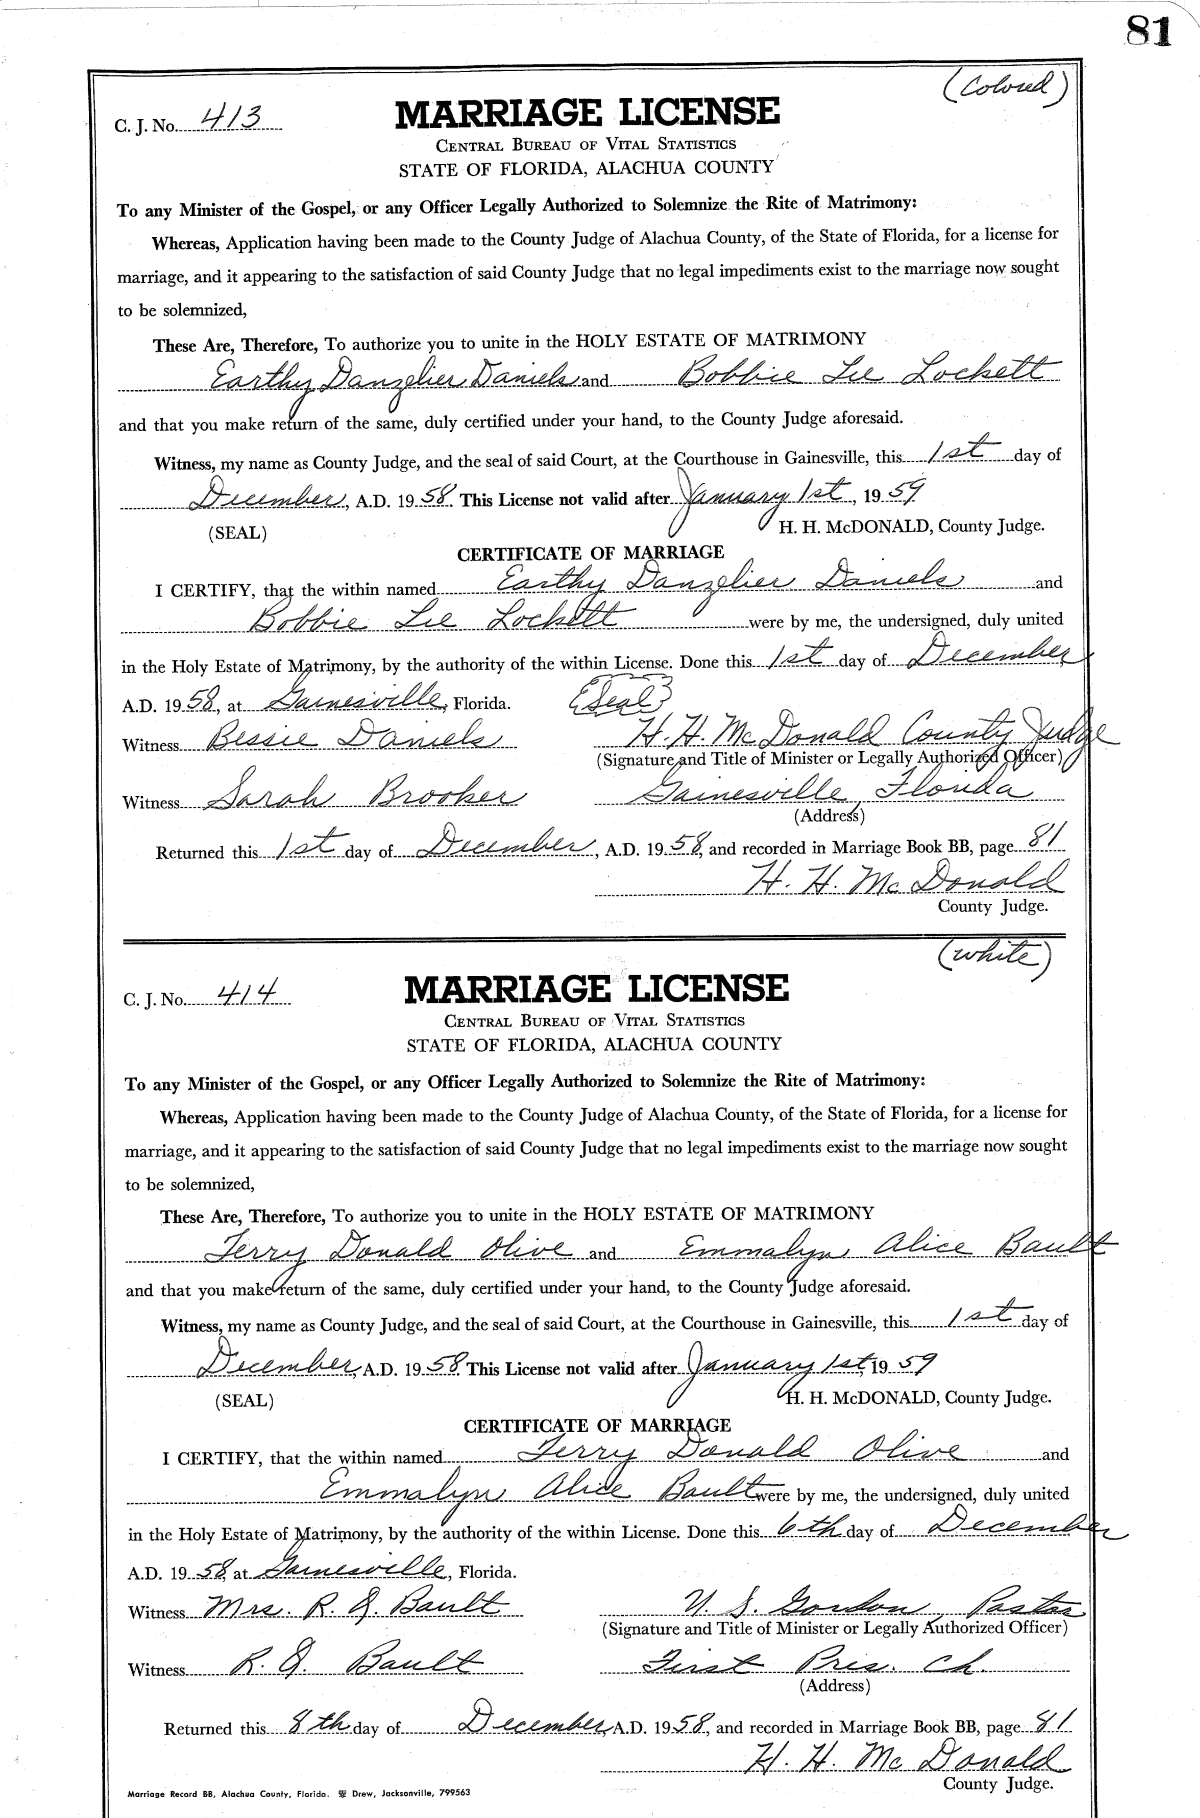 81
(Colored)
C. J. No. 413
MARRIAGE LICENSE
CENTRAL BUREAU OF VITAL STATISTICS
STATE OF FLORIDA, ALACHUA COUNTY
To any Minister of the Gospel, or any Officer Legally Authorized to Solemnize the Rite of Matrimony:
Whereas, Application having been made to the County Judge of Alachua County, of the State of Florida, for a license for
marriage, and it appearing to the satisfaction of said County Judge that no legal impediments exist to the marriage now sought
to be solemnized,
These Are, Therefore, To authorize you to unite in the HOLY ESTATE OF MATRIMONY
Earthy Danzelier Daniels and Bobbie Lee Lockett
and that you make return of the same, duly certified under your hand, to the County Judge aforesaid.
Witness, my name as County Judge, and the seal of said Court, at the Courthouse in Gainesville, this 1st day of
December, A.D. 1958. This License not valid after January 1st, 1959
(SEAL) H. H. McDONALD, County Judge.
CERTIFICATE OF MARRIAGE
I CERTIFY, that the within named Earthy Danzelier Daniels and
Bobbie Lee Lockett were by me, the undersigned, duly united
in the Holy Estate of Matrimony, by the authority of the within License. Done this 1st day of December
A.D. 1958, at Gainesville, Florida. (Seal)
Witness Bessie Daniels H. H. McDonald County Judge
(Signature and Title of Minister or Legally Authorized Officer)
Witness Sarah Brooker Gainesville, Florida
(Address)
Returned this 1st day of December, A.D. 1958, and recorded in Marriage Book BB, page 81
H. H. McDonald
County Judge.
(white)
C. J. No. 414
MARRIAGE LICENSE
CENTRAL BUREAU OF VITAL STATISTICS
STATE OF FLORIDA, ALACHUA COUNTY
To any Minister of the Gospel, or any Officer Legally Authorized to Solemnize the Rite of Matrimony:
Whereas, Application having been made to the County Judge of Alachua County, of the State of Florida, for a license for
marriage, and it appearing to the satisfaction of said County Judge that no legal impediments exist to the marriage now sought
to be solemnized,
These Are, Therefore, To authorize you to unite in the HOLY ESTATE OF MATRIMONY
Terry Donald Olive and Emmalyn Alice Bault
and that you make return of the same, duly certified under your hand, to the County Judge aforesaid.
Witness, my name as County Judge, and the seal of said Court, at the Courthouse in Gainesville, this 1st day of
December, A.D. 1958. This License not valid after January 1st, 1959
(SEAL) H. H. McDONALD, County Judge.
CERTIFICATE OF MARRIAGE
I CERTIFY, that the within named Terry Donald Olive and
Emmalyn Alice Bault were by me, the undersigned, duly united
in the Holy Estate of Matrimony, by the authority of the within License. Done this 6th day of December
A.D. 1958, at Gainesville, Florida.
Witness Mrs. R. J. Bault U. S. Gordon, Pastor
(Signature and Title of Minister or Legally Authorized Officer)
Witness R. J. Bault First Pres. Ch.
(Address)
Returned this 8th day of December, A.D. 1958, and recorded in Marriage Book BB, page 81
H. H. McDonald
County Judge.
Marriage Record BB, Alachua County, Florida. Drew, Jacksonville, 799563